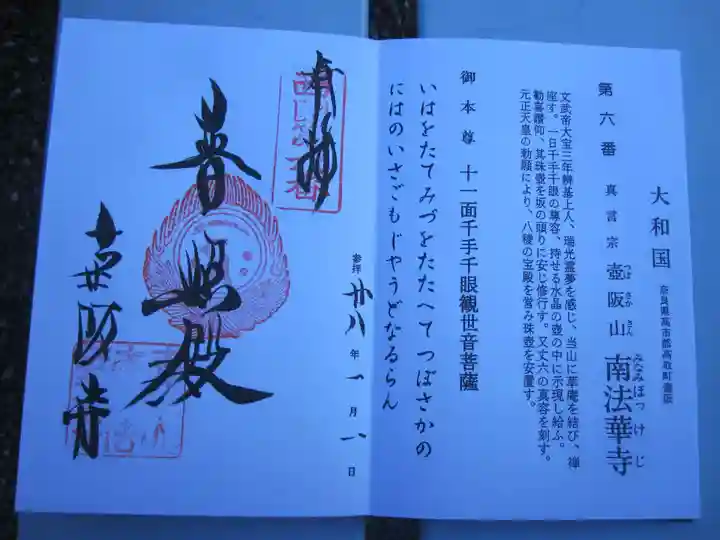 大和国
奈良県高市郡高取町壷阪
第六番 真言宗 壺阪山 南法華寺
つぼ さか さん みなみ ほっ け じ
文武帝大宝三年辨基上人、瑞光霊夢を感じ、当山に草庵を結び、禅
座す。一日千手千眼の尊容、持せる水晶の壺の中に示現し給ふ。
勧喜讃仰、其珠壺を坂の頭りに安じ修行す。又丈六の真容を刻す。
元正天皇の勅願により、八稜の宝殿を営み珠壺を安置す。
御本尊 十一面千手千眼観世音菩薩
いはをたてみづをたたへてつぼさかの
にはのいさごもじやうどなるらん
参拝 廿八年 一月 一日
奉拝
普照殿
壷阪寺